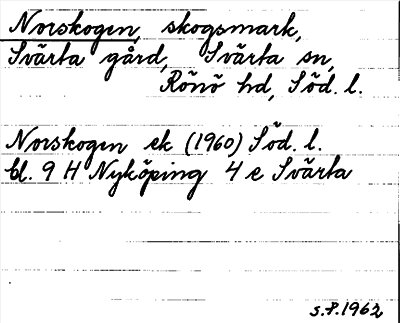 Norskogen, skogsmark,
Svärta gård, Svärta sn,
Rönö hd, Söd. l.
Norskogen ek (1960) Söd. l.
bl. 9 H Nyköping 4 e Svärta
s.f. 1962